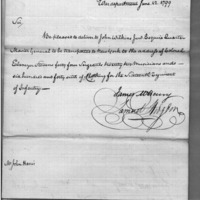 War department June 12. 1799
Sir,
Be pleased to deliver to John Wilkins Junr Esquire Quarter
Master General to be transported to New York to the order of Colonel
Ebenezer Stevens forty four Sergeants twenty two musicians and
six hundred and forty suits of Clothing for the Regiment
of Infantry
James McHenry
Samuel Hodgdon
Mr John Harris